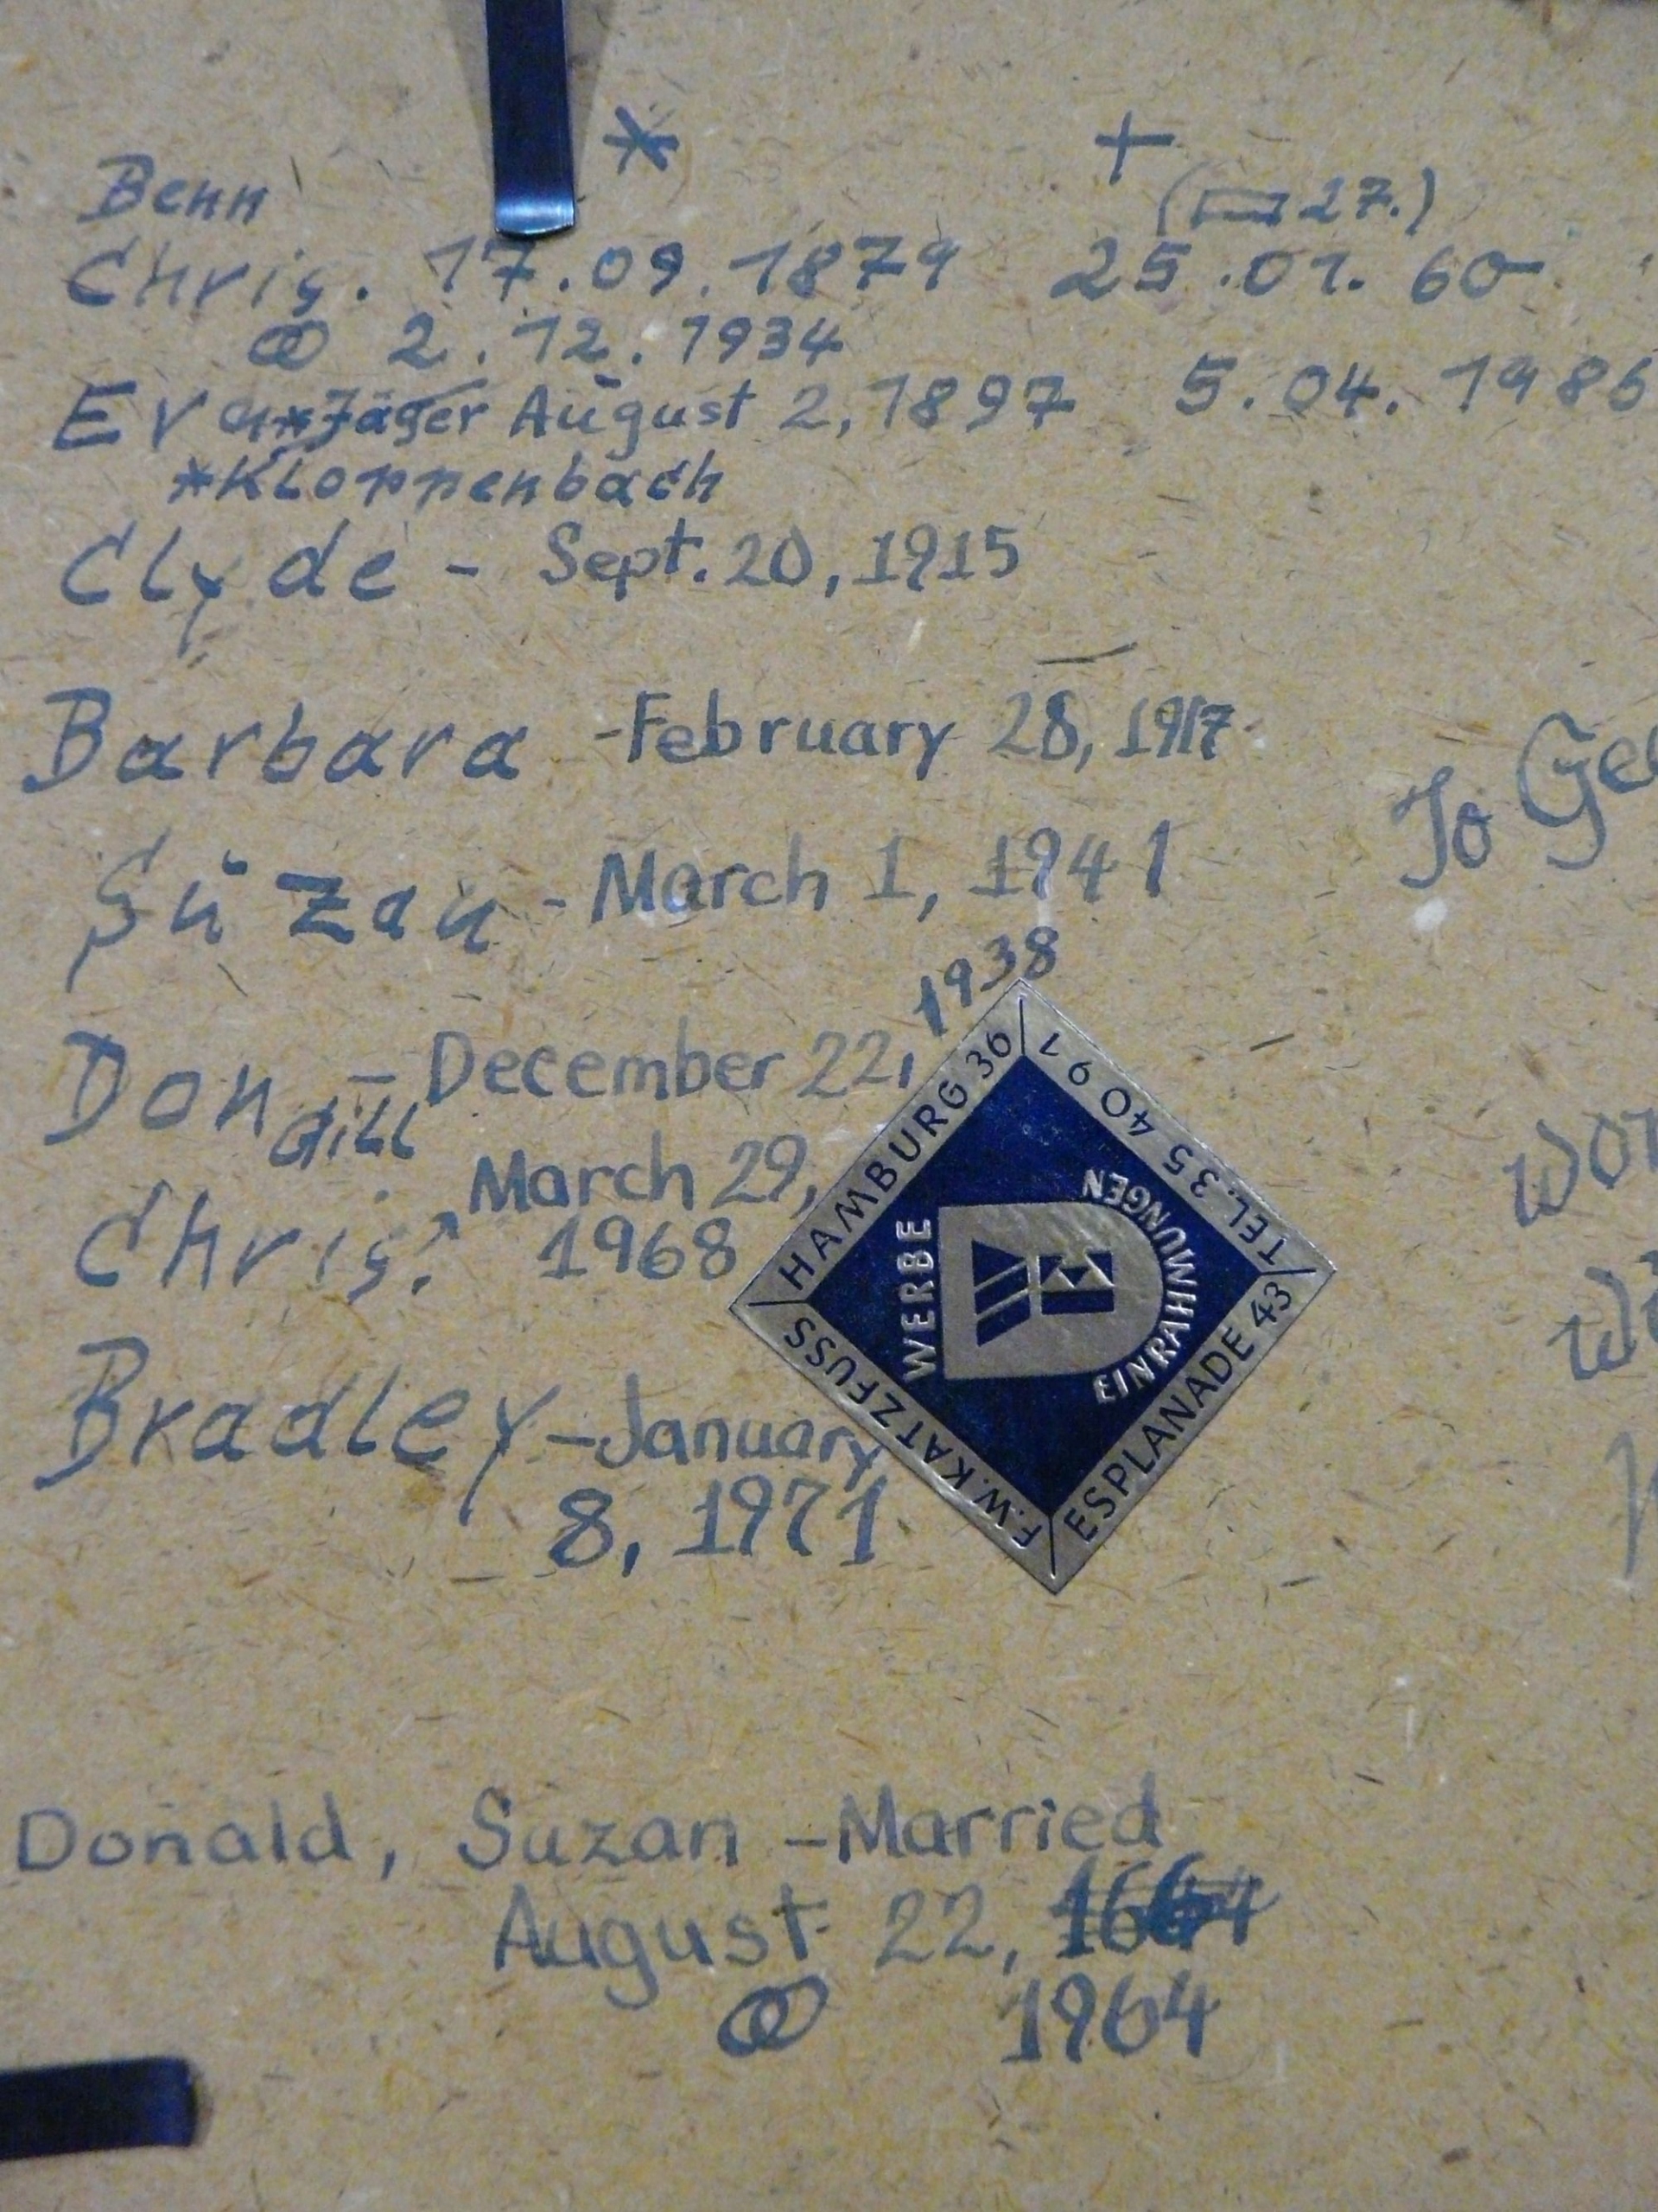 * +
Benn (▭ 27.)
Chris. 17.09.1879 25.01.60
⚭ 2.12.1934
Erna *Jäger August 2, 1897 5.04.1986
*Kloppenbach
Clyde - Sept. 20, 1915
Barbara - February 28, 1917
Suzan - March 1, 1941
Don - December 22, 1938
dill
Chris. March 29,
1968
Bradley - January
8, 1971
Donald, Suzan - Married
August 22,
⚭ 1964
To
HAMBURG 36
TEL. 35 40 91
ESPLANADE 43
F.W. KATZFUSS
WERBE
EINRAHMUNGEN